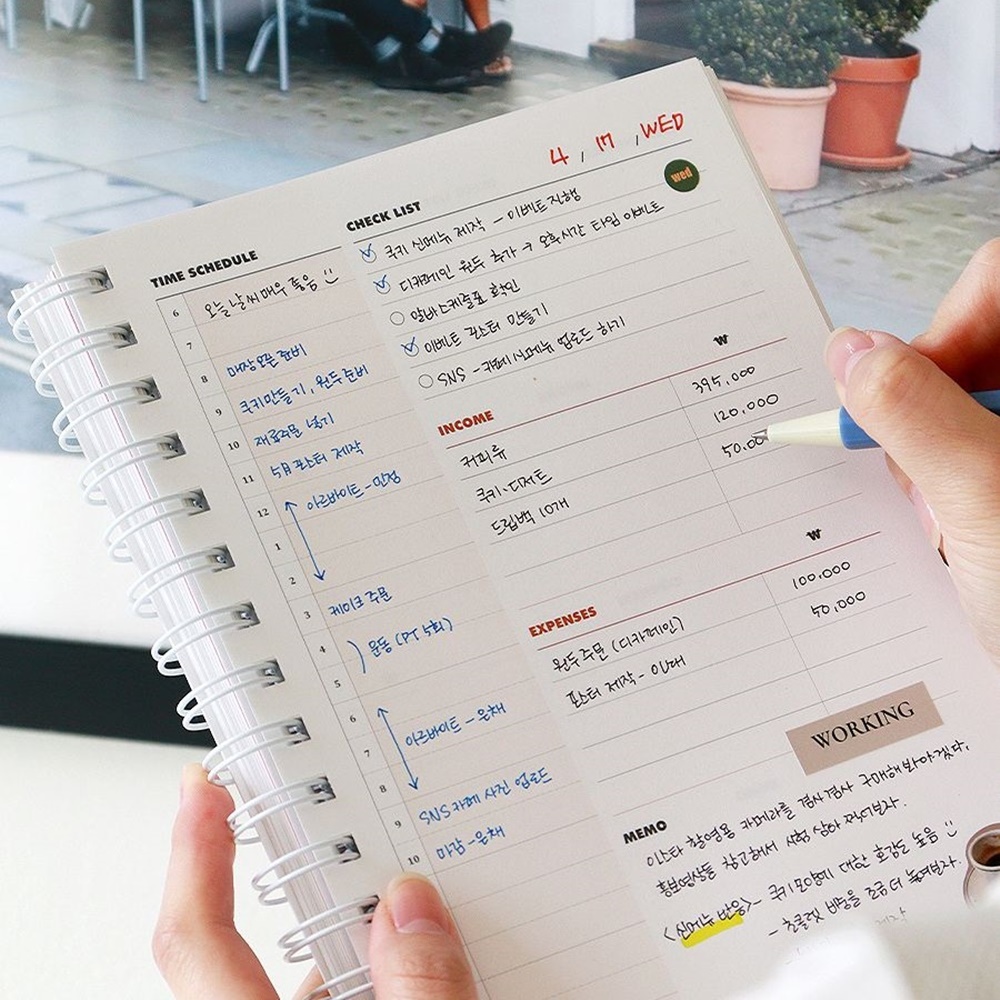 4 / 17 / WED
wed
TIME SCHEDULE
6 오늘 날씨 매우 좋음 :)
7
8 매장오픈 준비
9 쿠키만들기, 원두준비
10 재료주문 넣기
11 5月 포스터 제작
12 아르바이트 - 민정
1
2
3 케이크 주문
4 운동 (PT 5회)
5
6
7 아르바이트 - 은채
8
9 SNS 카페 사진 업로드
10 마감 - 은채
CHECK LIST
쿠키 신메뉴 제작 - 이벤트 진행
디카페인 원두 추가 → 오후시간 타임 이벤트
알바스케줄표 확인
이벤트 포스터 만들기
SNS - 카페 신메뉴 업로드 하기
INCOME ₩
커피류 395,000
쿠키·디저트 120,000
드립백 10개 50,00
EXPENSES ₩
원두주문 (디카페인) 100,000
포스터 제작 - 인대 50,000
WORKING
MEMO
인스타 촬영용 카메라를 겸사겸사 구매해봐야겠다.
홍보영상들 참고해서 시험삼아 찍어보자.
<신메뉴 반응> - 쿠키모양에 대한 호감도 높음 :)
- 초콜릿 비중을 조금 더 높여보자.
제작